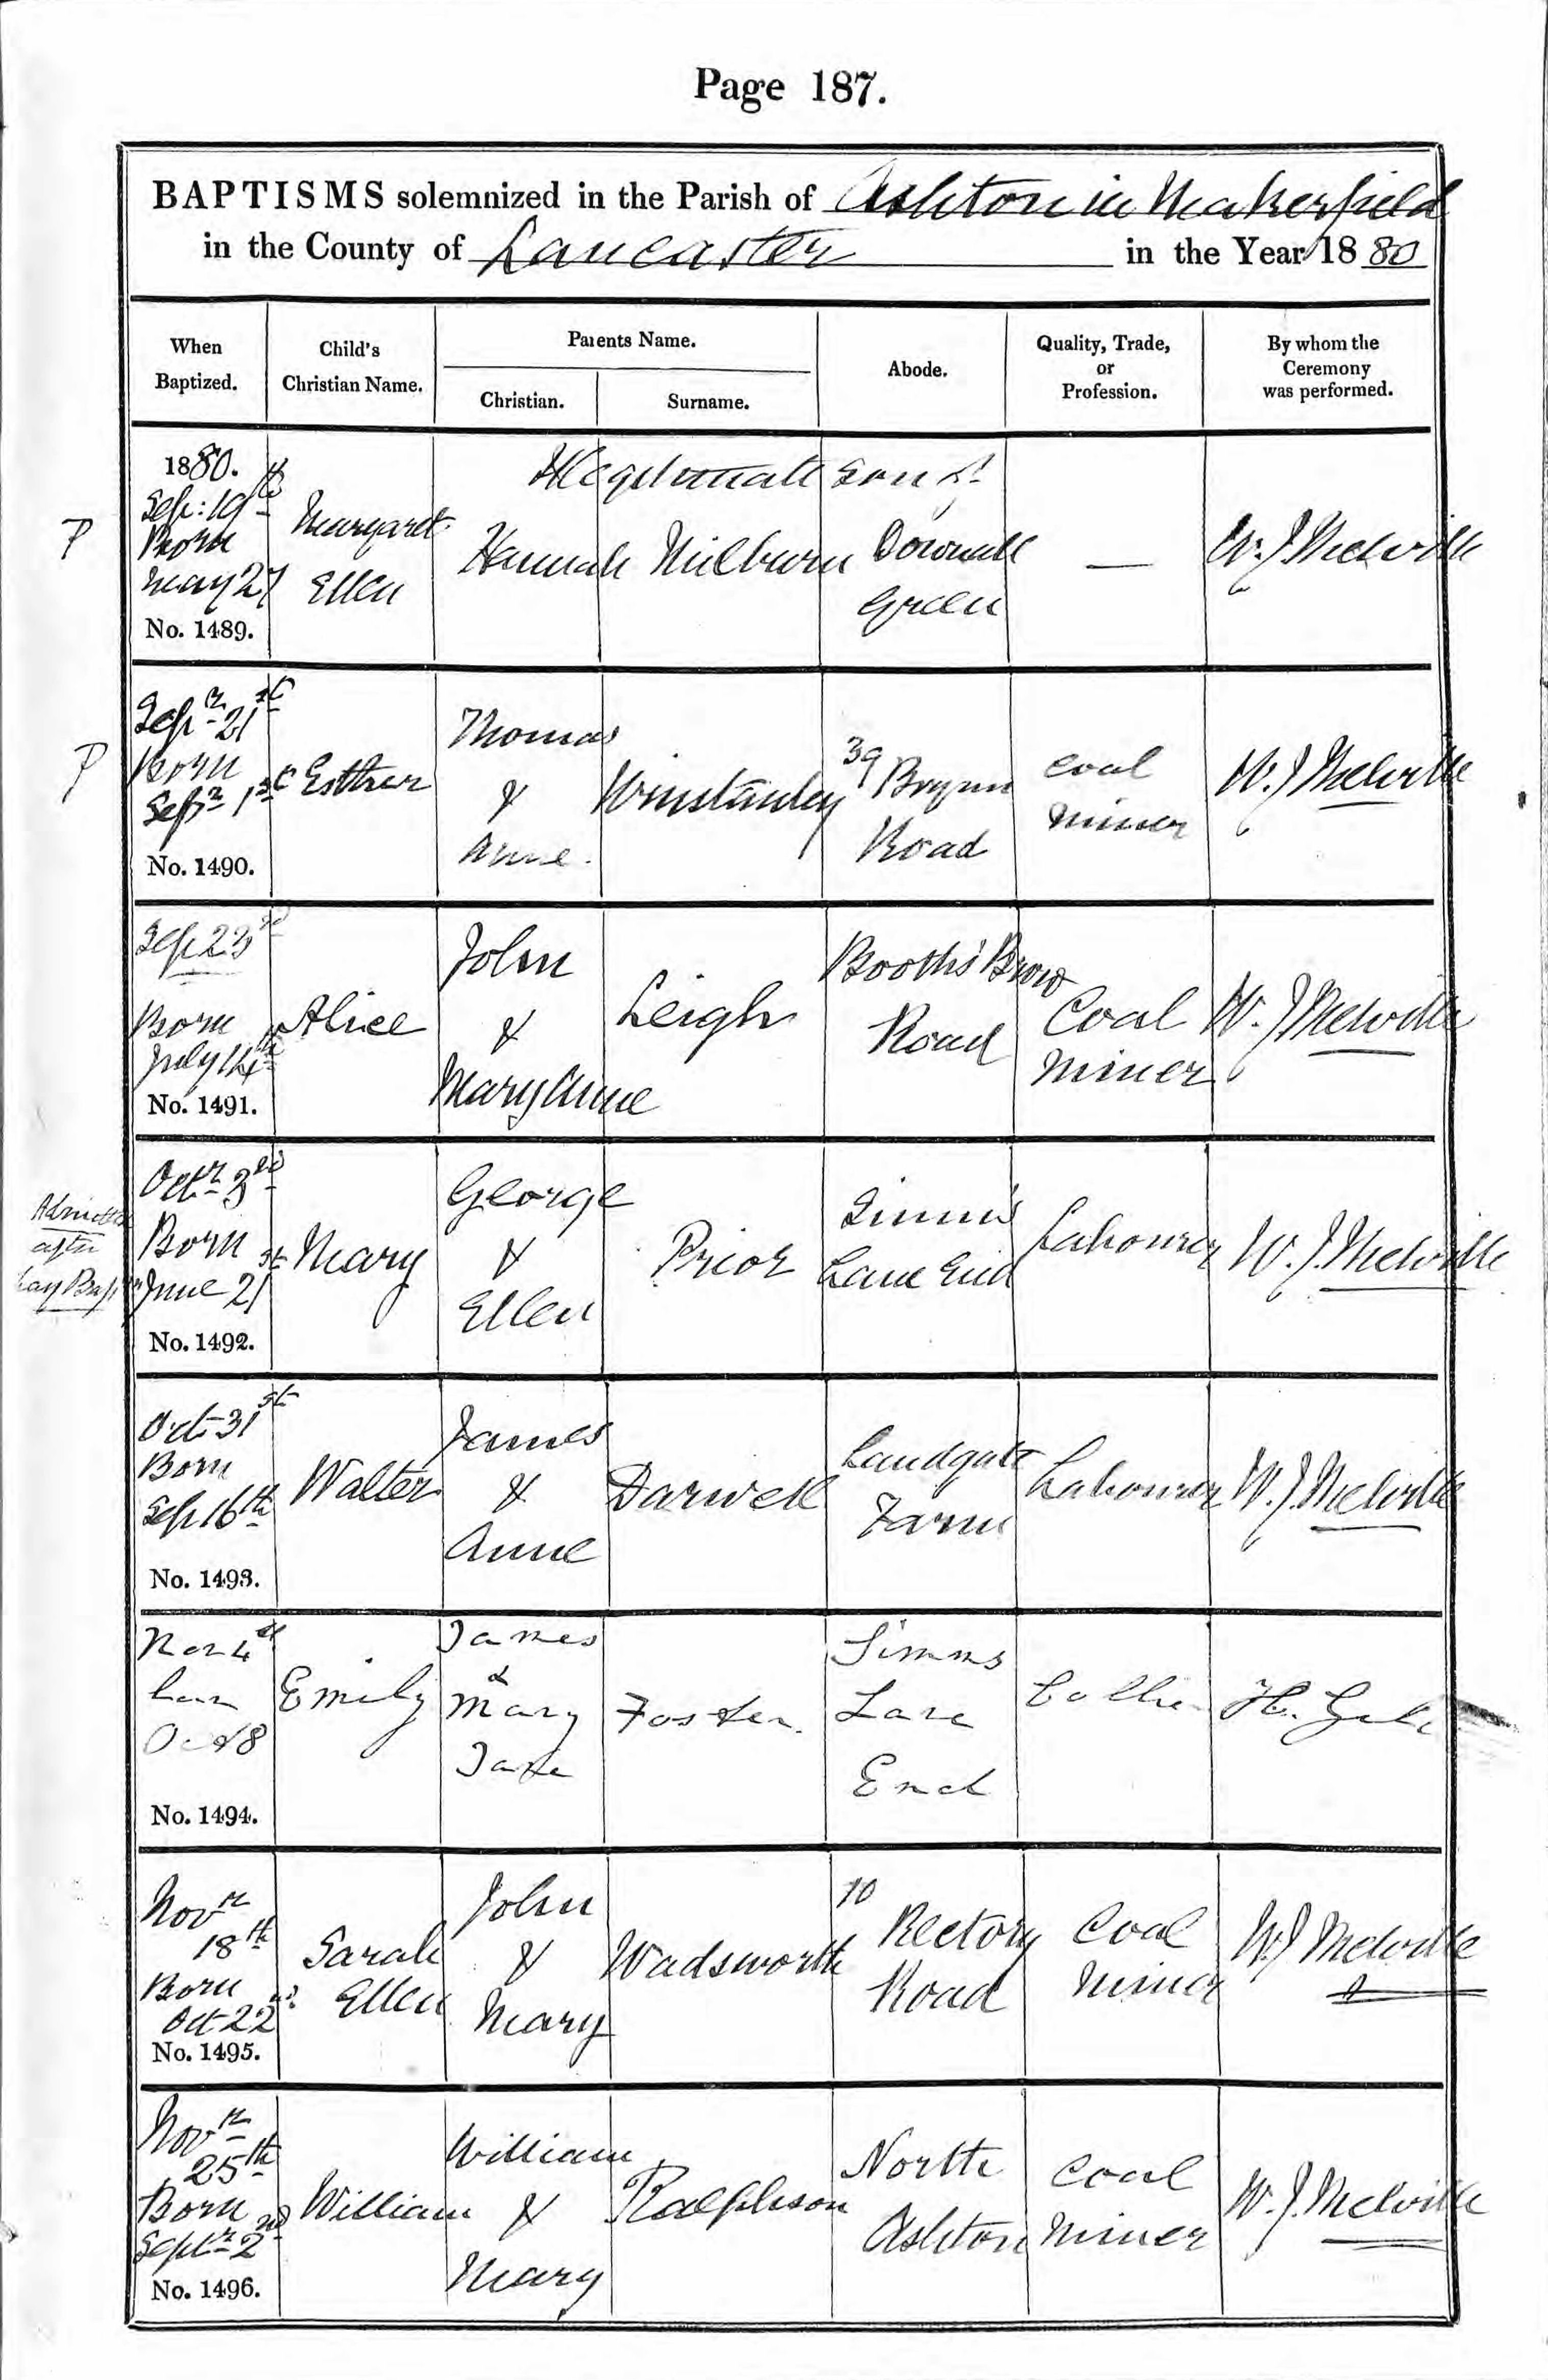 Page 187.
BAPTISMS solemnized in the Parish of Ashton in Makerfield
in the County of Lancaster in the Year 1880
When Baptized.
Child's Christian Name.
Parents Name.
Christian.
Surname.
Abode.
Quality, Trade, or Profession.
By whom the Ceremony was performed.
1880.
Sep: 19th
Born
May 27th
No. 1489.
P
Margaret
Ellen
Illegitimate son of
Hannah
Milburn
Downall
Green
—
W. J. Melville
Sepr 21st
Born
Sepr 1st
No. 1490.
P
Esther
Thomas
&
Anne.
Winstanley
39 Brynn
Road
Coal
Miner
W. J. Melville
Sep 23rd
Born
July 14th
No. 1491.
Alice
John
&
Mary Anne
Leigh
Booths' Brow
Road
Coal
Miner
W. J. Melville
Admitted
after
Lay Bap
Octr 3rd
Born
June 21st
No. 1492.
Mary
George
&
Ellen
Prior
Simm's
Lane End
Labourer
W. J. Melville
Oct 31st
Born
Sep 16th
No. 1493.
Walter
James
&
Anne
Darwell
Landgate
Farm
Labourer
W. J. Melville
Nov 4th
born
Oct 8
No. 1494.
Emily
James
&
Mary
Jane
Foster.
Simms
Lane
End
Collier
H.
Novr
18th
Born
Oct 22nd
No. 1495.
Sarah
Ellen
John
&
Mary
Wadsworth
10 Rectory
Road
Coal
Miner
W J Melville
Novr
25th
Born
Septr 2nd
No. 1496.
William
William
&
Mary
Ralphson
North
Ashton
Coal
Miner
W. J. Melville